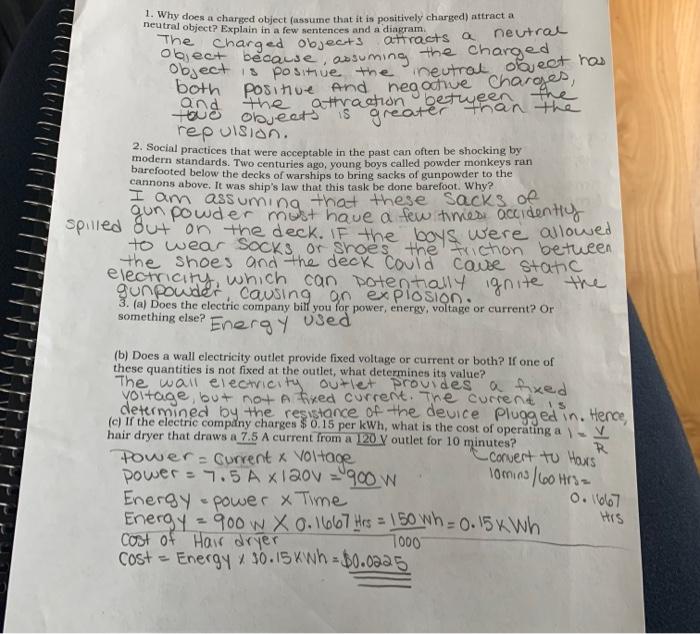 1. Why does a charged object (assume that it is positively charged) attract a
neutral object? Explain in a few sentences and a diagram.
The charged objects attracts a neutral
object because, assuming the charged
object is positive, the neutral object has
both positive And negative charges,
and the attraction between the
two objects is greater than the
repulsion.
2. Social practices that were acceptable in the past can often be shocking by
modern standards. Two centuries ago, young boys called powder monkeys ran
barefooted below the decks of warships to bring sacks of gunpowder to the
cannons above. It was ship's law that this task be done barefoot. Why?
I am assuming that these sacks of
gun powder must have a few times accidently
spilled out on the deck. IF the boys were allowed
to wear socks or shoes, the friction between
the shoes and the deck could cause static
electricity, which can potentially ignite the
gunpowder, causing an explosion.
3. (a) Does the electric company bill you for power, energy, voltage or current? Or
something else? Energy used
(b) Does a wall electricity outlet provide fixed voltage or current or both? If one of
these quantities is not fixed at the outlet, what determines its value?
The wall electricity outlet provides a fixed
voltage, but not A fixed current. The current is
determined by the resistance of the device plugged in. Hence,
(c) If the electric company charges $ 0.15 per kWh, what is the cost of operating a I = V/R
hair dryer that draws a 7.5 A current from a 120 V outlet for 10 minutes?
Power = Current x Voltage
Convert to Hours
power = 7.5 A x 120V = 900 W
10mins/60 Hrs =
Energy = power x Time
0.1667
Hrs
Energy = 900 W X 0.1667 Hrs = 150 Wh = 0.15 KWh
Cost of Hair dryer
1000
Cost = Energy x $0.15KWh = $0.0225